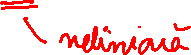 neliniară